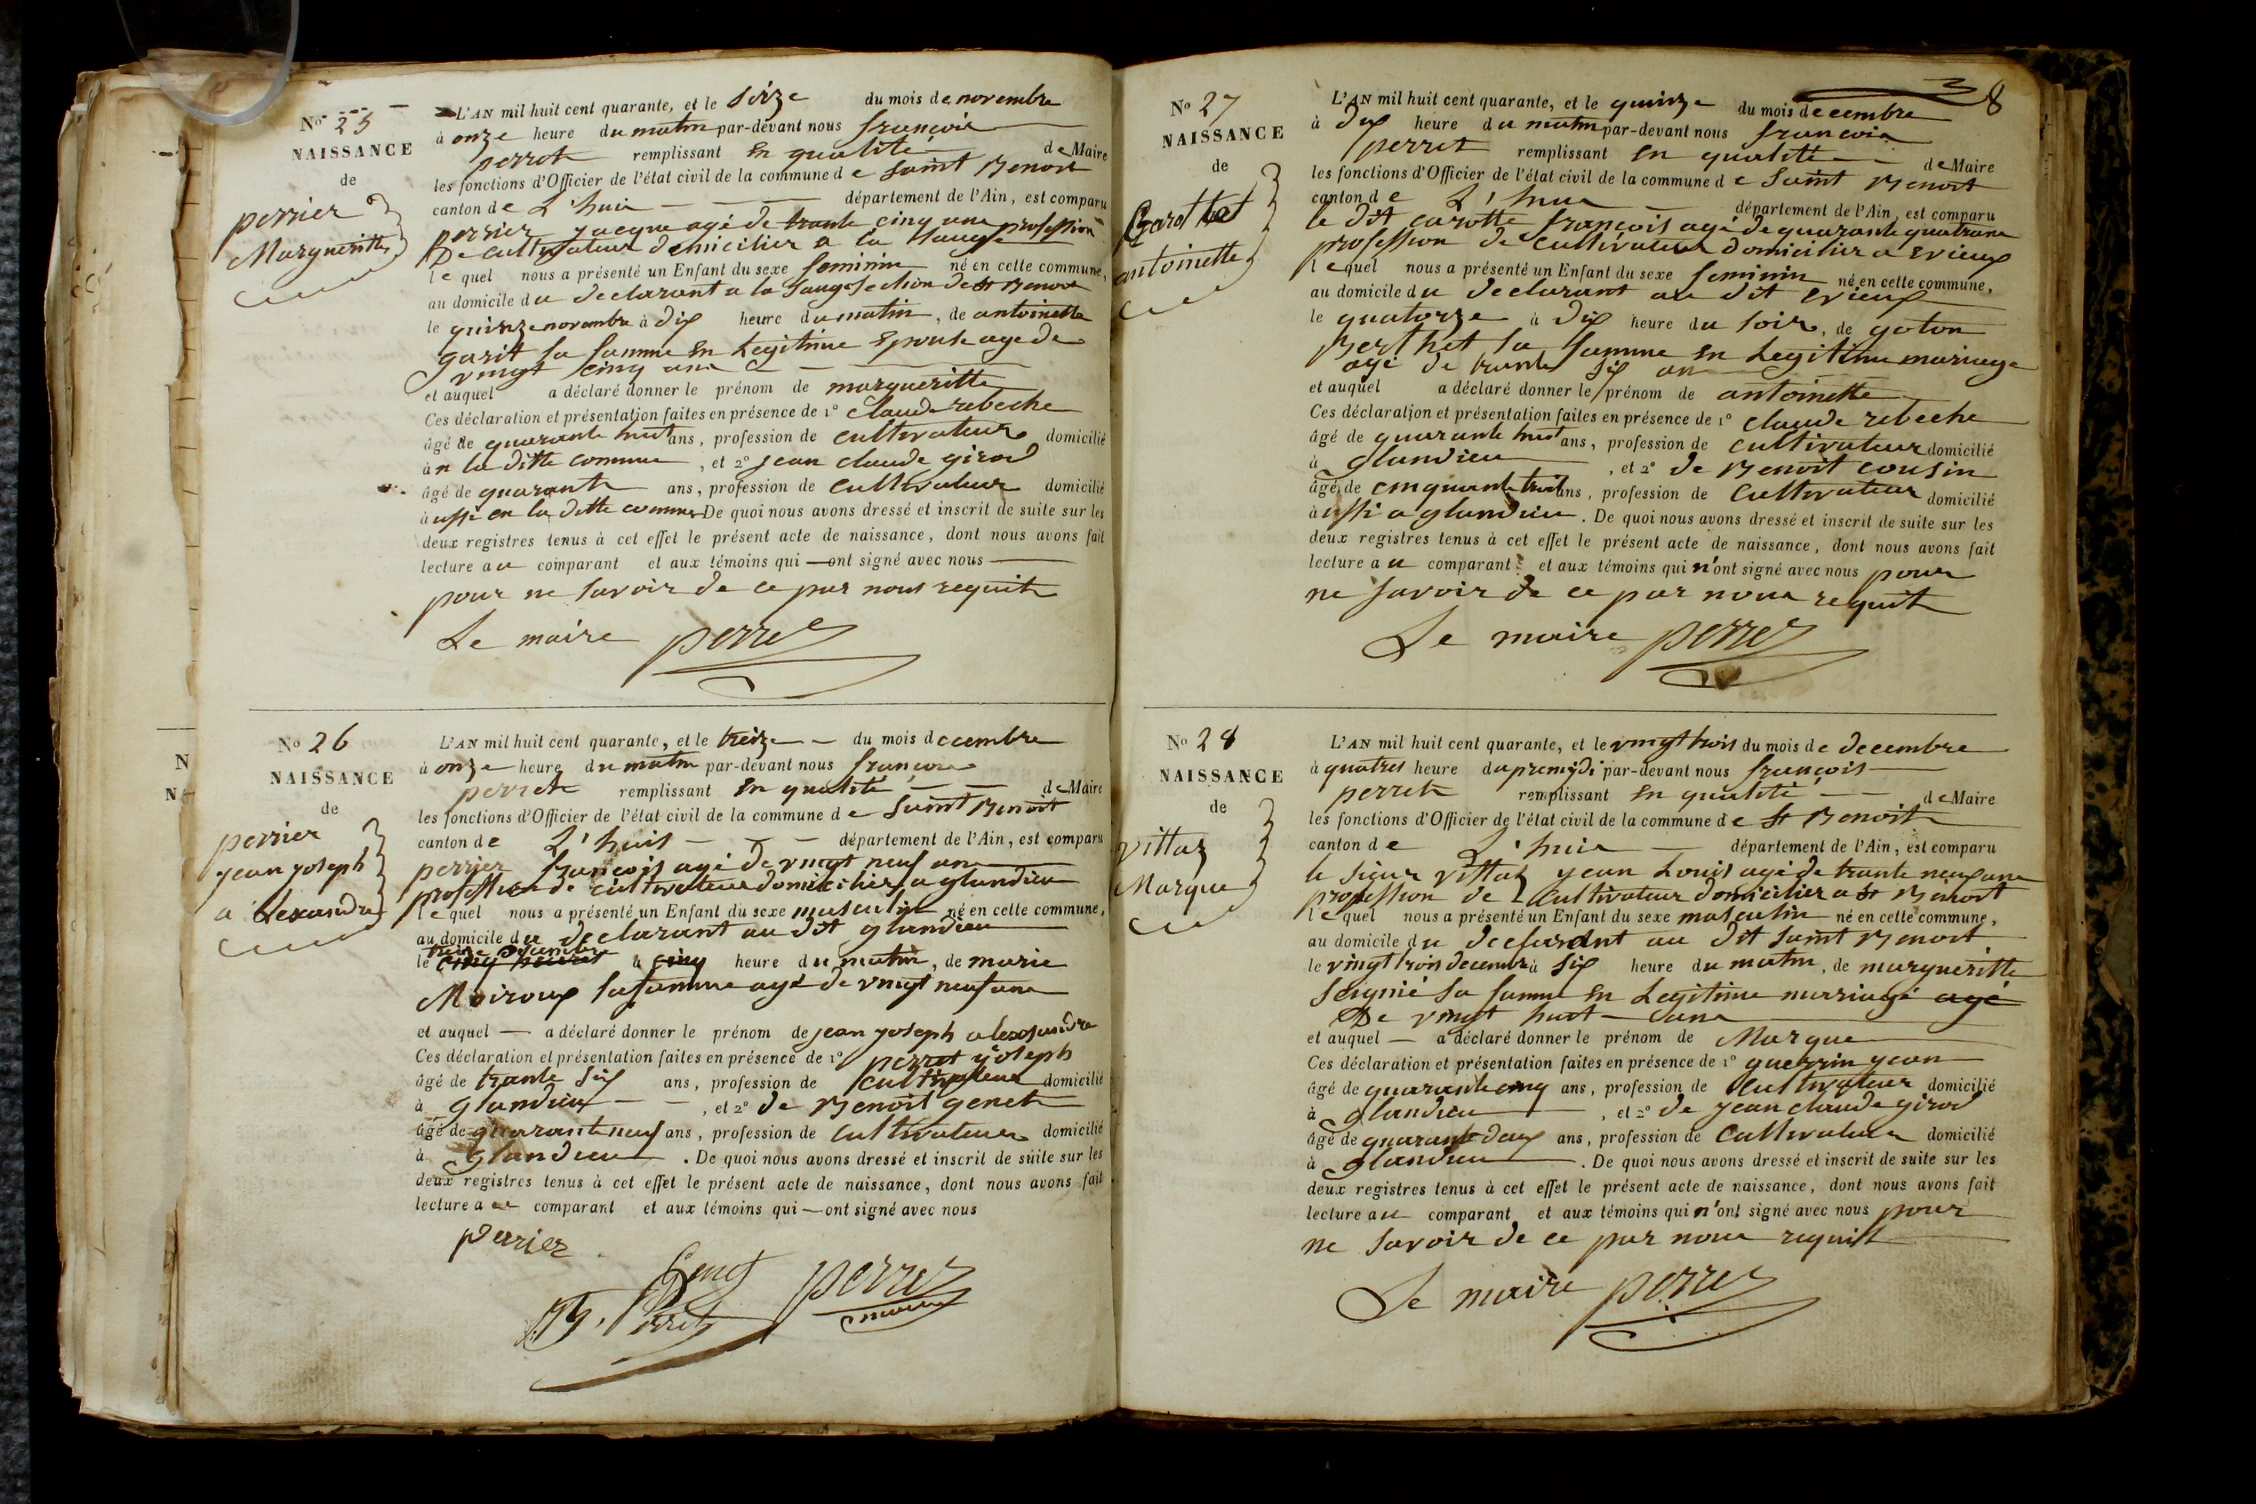 N° 25
NAISSANCE
de
perrier
Margueritte
L'AN mil huit cent quarante, et le seize du mois de novembre
à onze heure du matin par-devant nous françois
perret remplissant En qualité de Maire
les fonctions d'Officier de l'état civil de la commune de saint Benoit
canton de L'huis département de l'Ain, est comparu
perrier jacque agé de trante cinq ans profession
De cultivateur domicilier a la sauge
lequel nous a présenté un Enfant du sexe feminin né en cette commune,
au domicile du declarant a la sauge section de st Benoit
le quinze novembre à dix heure du matin, de antoinette
garit sa famme En Legitime Epouse age de
vingt cinq ans
et auquel a déclaré donner le prénom de margueritte
Ces déclaration et présentation faites en présence de 1° claude rebeche
âgé de quarante huit ans, profession de cultivateur domicilié
àn la ditte commune, et 2° jean claude girod
âgé de quarante ans, profession de cultivateur domicilié
àussi en la ditte commune De quoi nous avons dressé et inscrit de suite sur les
deux registres tenus à cet effet le présent acte de naissance, dont nous avons fait
lecture au comparant et aux témoins qui ont signé avec nous
pour ne savoir de ce par nous requit
Le maire perret
N° 26
NAISSANCE
de
perrier
jean joseph
alexandre
L'AN mil huit cent quarante, et le treize du mois decembre
à onze heure du matin par-devant nous françois
perret remplissant En qualité de Maire
les fonctions d'Officier de l'état civil de la commune de saint Benoit
canton de L'huis département de l'Ain, est comparu
perrier françois agé de vingt neuf ans
profession de cultivateur domicilier a glandieu
lequel nous a présenté un Enfant du sexe masculin né en cette commune,
au domicile du declarant au dit glandieu
treize decembre
le cinq à cinq heure du matin, de marie
Moiroux sa famme agé de vingt neuf ans
et auquel a déclaré donner le prénom de jean joseph alexsandre
Ces déclaration et présentation faites en présence de 1° perret joseph
âgé de trante six ans, profession de cultivateur domicilié
à glandieu, et 2° de Benoit genet
âgé de quarante neuf ans, profession de cultivateur domicilié
à glandieu. De quoi nous avons dressé et inscrit de suite sur les
deux registres tenus à cet effet le présent acte de naissance, dont nous avons fait
lecture au comparant et aux témoins qui ont signé avec nous
perrier
perret
maire
8
N° 27
NAISSANCE
de
Carottat
antoinette
L'AN mil huit cent quarante, et le quinze du mois decembre
à dix heure du matin par-devant nous françois
perret remplissant En qualité de Maire
les fonctions d'Officier de l'état civil de la commune de saint Benoit
canton de L'huis département de l'Ain, est comparu
le dit carotte françois agé de quarante quatrans
profession de cultivateur domicilier a Evieux
lequel nous a présenté un Enfant du sexe feminin né en cette commune,
au domicile du declarant au dit Evieux
le quatorze à dix heure du soir, de goton
Berthet sa famme en Legitime mariage
agé de trante six an
et auquel a déclaré donner le prénom de antoinette
Ces déclaration et présentation faites en présence de 1° claude rebeche
âgé de quarante huit ans, profession de cultivateur domicilié
à glandieu, et 2° de Benoit cousin
âgé de cinquante huit ans, profession de cultivateur domicilié
àussi a glandieu. De quoi nous avons dressé et inscrit de suite sur les
deux registres tenus à cet effet le présent acte de naissance, dont nous avons fait
lecture au comparant et aux témoins qui n'ont signé avec nous pour
ne savoir de ce par nous requit
Le maire perret
N° 28
NAISSANCE
de
Vittoz
Marque
L'AN mil huit cent quarante, et le vingt trois du mois de decembre
à quatres heure dapremidi par-devant nous françois
perret remplissant En qualité de Maire
les fonctions d'Officier de l'état civil de la commune de st Benoit
canton de L'huis département de l'Ain, est comparu
le sieur vittoz jean Louis agé de trante neuf ans
profession de cultivateur domicilier a st Benoit
lequel nous a présenté un Enfant du sexe masculin né en cette commune,
au domicile du declarant au dit saint Benoit
le vingt trois decembre à six heure du matin, de margueritte
seignié sa famme En Legitime mariage agé
De vingt huit ans
et auquel a déclaré donner le prénom de Marque
Ces déclaration et présentation faites en présence de 1° guerrin jean
âgé de quarante cinq ans, profession de cultivateur domicilié
à glandieu, et 2° de jean claude girod
âgé de quarante deux ans, profession de cultivateur domicilié
à glandieu. De quoi nous avons dressé et inscrit de suite sur les
deux registres tenus à cet effet le présent acte de naissance, dont nous avons fait
lecture au comparant et aux témoins qui n'ont signé avec nous pour
ne savoir de ce par nous requist
Le maire perret